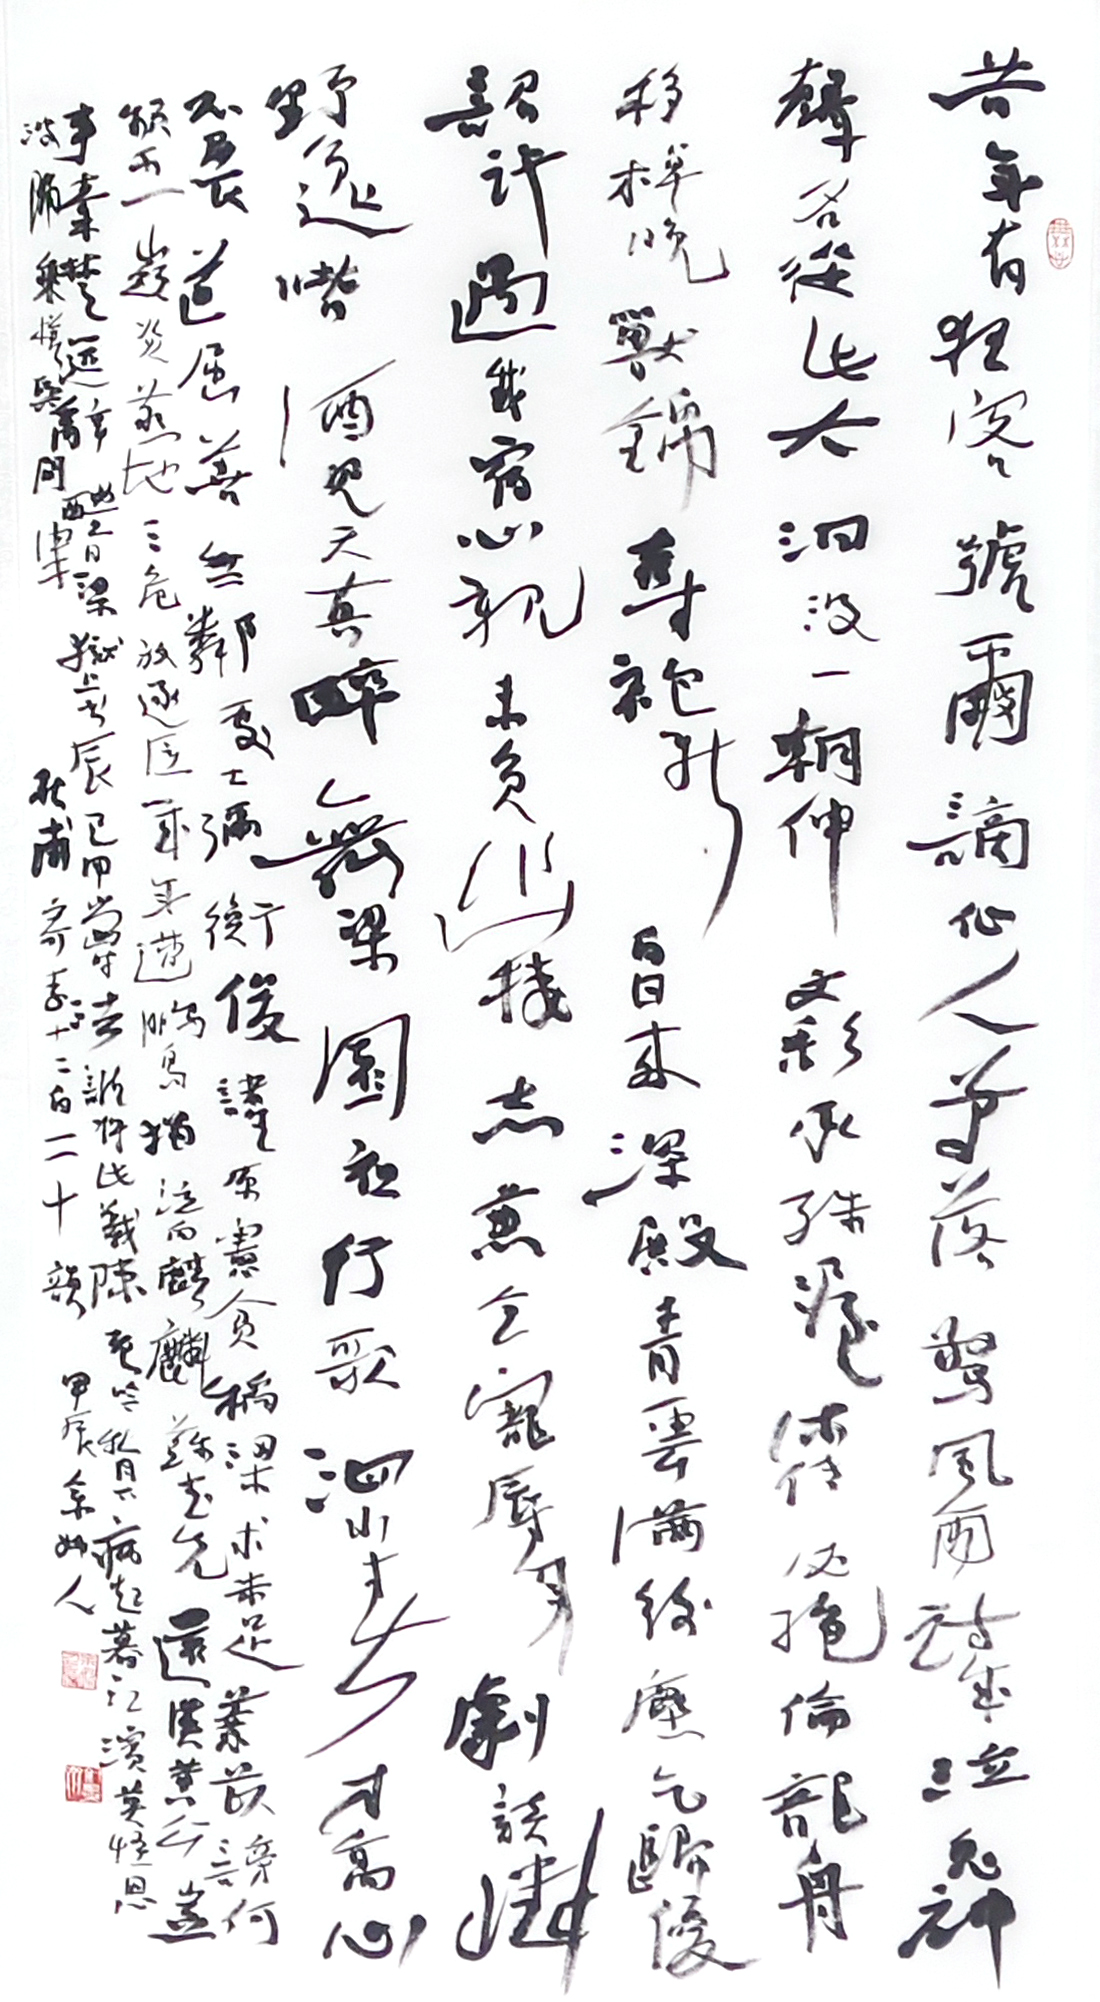 昔年有狂客號爾謫仙人筆落驚風雨詩成泣鬼神
聲名從此大汩没一朝伸文彩承殊渥流傳必絶倫龍舟
移棹晚獸錦奪袍新白日來深殿青雲滿後塵乞歸優
詔許遇我宿心親未負幽棲志兼全寵辱身劇談憐
野逸嗜酒見天真醉舞梁園夜行歌泗水春才高心
不展道屈善無鄰處士禰衡俊諸生原憲貧稻粱求未足薏苡謗何
頻五嶺炎蒸地三危放逐臣幾年遭鵩鳥獨泣向麒麟蘇武先還漢黄公豈
事秦楚筵辭醴日梁獄上書辰已用當時法誰將此義陳老吟秋月下病起暮江濱莫怪恩
波隔乘槎與問津 杜甫寄李十二白二十韻 甲辰